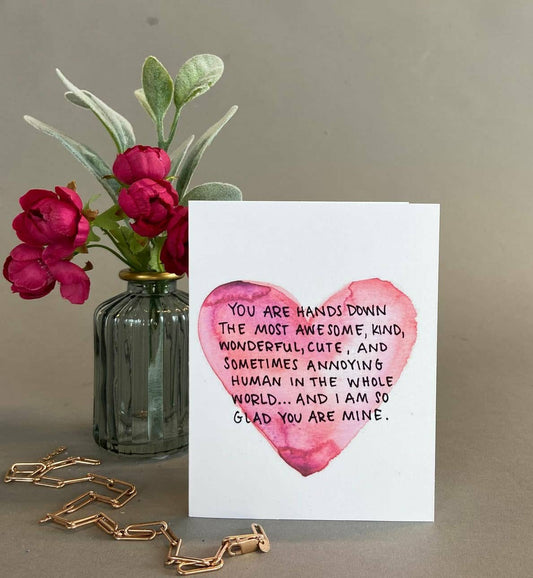 YOU ARE HANDS DOWN
THE MOST AWESOME, KIND,
WONDERFUL, CUTE, AND
SOMETIMES ANNOYING
HUMAN IN THE WHOLE
WORLD... AND I AM SO
GLAD YOU ARE MINE.